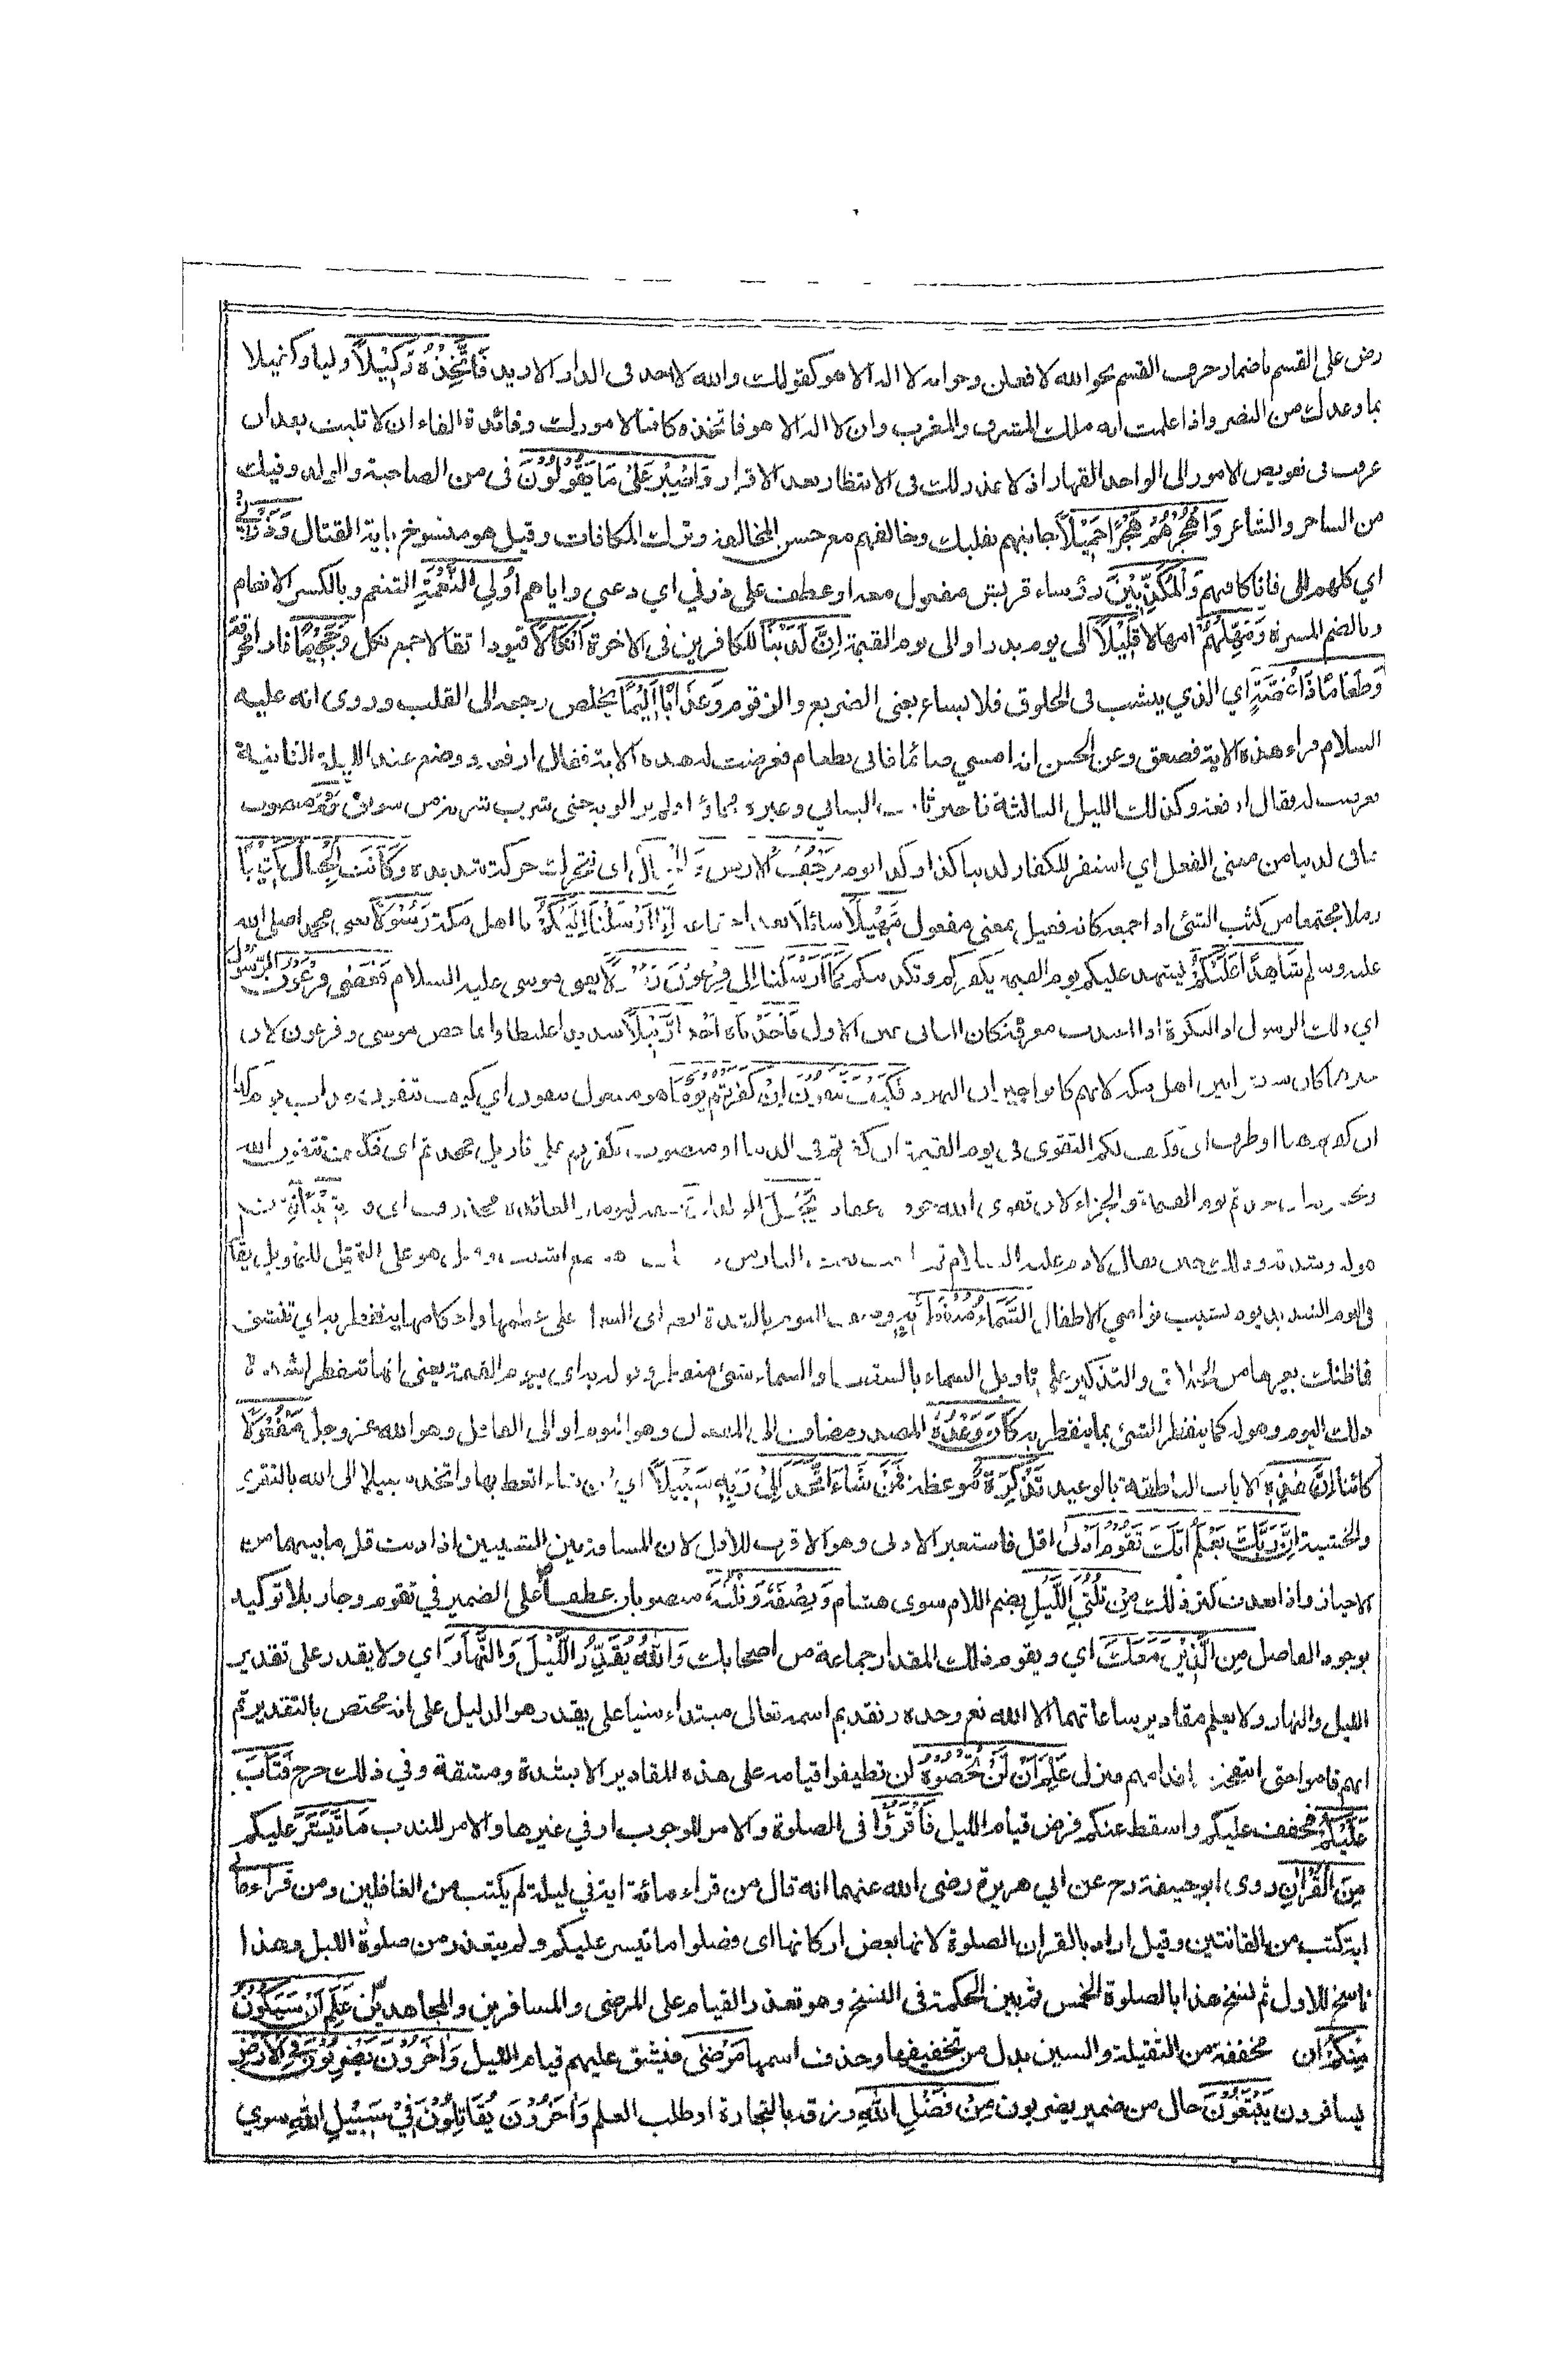 رض على القسم باضمار حرف القسم نحو الله لا فعلن وجوابه لا اله الا هو كقولك والله لا احد فى الدار الا زيد فَاتَّخِذْهُ وَكِيْلًا وليا وكفيلا
بما وعدك من النصر واذا علمت انه ملك المشرق والمغرب وان لا اله الا هو فاتخذه كافيا لامورك وفائدة الفاء ان لا تلبث بعد ان
عرفت فى تفويض الامور الى الواحد القهار اذ لا عذر لك فى الانتظار بعد الاقرار وَاصْبِرْ عَلٰى مَا يَقُوْلُوْنَ فى من الصاحبة والولد وفيك
من الساحر والشاعر وَاهْجُرْهُمْ هَجْرًا جَمِيْلًا جانبهم بقلبك وخالفهم مع حسن المخالفة وترك المكافات وقيل هو منسوخ باية القتال وَذَرْنِىْ
اي كلهم الى فانا كافيهم وَالْمُكَذِّبِيْنَ رؤساء قريش مفعول معه او عطف على ذرني اي دعني واياهم اُولِي النَّعْمَةِ التنعم وبالكسر الانعام
وبالضم المسرة وَمَهِّلْهُمْ امهالا قَلِيْلًا الى يوم بدر او الى يوم القيمة اِنَّ لَدَيْنَا للكافرين فى الاخرة اَنْكَالًا قيودا ثقالا جمع نكل وَجَحِيْمًا نارا محرقة
وَطَعَامًا ذَا غُصَّةٍ اي الذي ينشب فى الحلوق فلا ينساغ يعنى الضريع والزقوم وَعَذَابًا اَلِيْمًا يخلص رجعه الى القلب وروى انه عليه
السلام قراء هذه الاية فصعق وعن الحسن انه امسي صائما فاتى بطعام فعرضت له هذه الاية فقال ارفعه ووضع عنده الليلة الثانية
فعرضت له فقال ارفعه وكذلك الليل الثالثة فاخبر ثابت البناني وغيره فجاؤا فلم يزالوا به حتى شرب شربة من سويق يَوْمَ منصوب
بما فى لدينا من معنى الفعل اي استقر للكفار لدينا كذا وكذا يوم تَرْجُفُ الْاَرْضُ وَالْجِبَالُ اى تتحرك حركة شديدة وَكَانَتِ الْجِبَالُ كَثِيْبًا
رملا مجتمعا من كثب الشئ اذا جمعه كانه فعيل بمعنى مفعول مَّهِيْلًا سائلا بعد اجتماعه اِنَّا اَرْسَلْنَا اِلَيْكُمْ يا اهل مكة رَسُوْلًا يعنى محمدا صلى الله
عليه وسلم شَاهِدًا عَلَيْكُمْ يشهد عليكم يوم القيمة بكفركم وتكذيبكم كَمَا اَرْسَلْنَا اِلٰى فِرْعَوْنَ رَسُوْلًا يعنى موسى عليه السلام فَعَصٰى فِرْعَوْنُ الرَّسُوْلَ
اي ذلك الرسول اذ النكرة اذا اعيدت معرفة كان الثانى عين الاول فَاَخَذْنَاهُ اَخْذًا وَّبِيْلًا شديدا غليظا وانما خص موسى وفرعون لان
كانوا جيران اليهود فَكَيْفَ تَتَّقُوْنَ اِنْ كَفَرْتُمْ يَوْمًا هو مفعول تتقون اي كيف تتقون عذاب يوم كذا
ان كفرتم اى فكيف لكم التقوى فى يوم القيمة ان كفرتم فى الدنيا او منصوب بكفرتم على تاويل جحدتم اى فكيف تتقون الله
ان جحدتم يوم القيمة والجزاء لان تقوى الله خوف عقابه يَّجْعَلُ الْوِلْدَانَ صفة ليوما والعائد محذوف اى فيه شِيْبًا من
هوله وشدته وذلك حين يقال لادم عليه السلام قم فابعث بعث النار من ذريتك جمع اشيب وقيل هو على التمثيل للتهويل يقال
فى اليوم الشديد يوم يشيب نواصي الاطفال السَّمَاءُ مُنْفَطِرٌ بِهٖ وصف اليوم بالشدة ايضا اى السماء على عظمها واحكامها ينفطر به اي تنشق
فما ظنك بغيرها من الخلائق والتذكير على تاويل السماء بالسقف او السماء شئ منفطر وقوله به اى بيوم القيمة يعنى انها تنفطر لشدة
ذلك اليوم وهوله كما ينفطر الشئ بما ينفطر به كَانَ وَعْدُهٗ المصدر مضاف الى المفعول وهو اليوم او الى الفاعل وهو الله عز وجل مَفْعُوْلًا
كائنا اِنَّ هٰذِهٖ الايات الناطقة بالوعيد تَذْكِرَةٌ موعظة فَمَنْ شَاءَ اتَّخَذَ اِلٰى رَبِّهٖ سَبِيْلًا اي فمن شاء اتعظ بها واتخذ سبيلا الى الله بالتقوى
والخشية اِنَّ رَبَّكَ يَعْلَمُ اَنَّكَ تَقُوْمُ اَدْنٰى اقل فاستعير الادنى وهو الاقرب للاقل لان المسافة بين الشيئين اذا دنت قل ما بينهما من
الاحياز واذا بعدت كثر ذلك مِنْ ثُلُثَيِ اللَّيْلِ بضم اللام سوى هشام وَنِصْفَهٗ وَثُلُثَهٗ منصوبان عطفا على الضمير في تقوم وجاز بلا توكيد
بوجود الفاصل مِنَ الَّذِيْنَ مَعَكَ اي ويقوم ذلك المقدار جماعة من اصحابك وَاللّٰهُ يُقَدِّرُ اللَّيْلَ وَالنَّهَارَ اي ولا يقدر على تقدير
الليل والنهار ولا يعلم مقادير ساعاتهما الا الله تع وحده وتقديم اسمه تعالى مبتداء مبنيا على يقدر هو الدليل على انه مختص بالتقدير ثم
انهم قاموا حتى انتفخت اقدامهم فنزل عَلِمَ اَنْ لَّنْ تُحْصُوْهُ لن تطيقوا قيامه على هذه المقادير الا بشدة ومشقة وفي ذلك حرج فَتَابَ
عَلَيْكُمْ فخفف عليكم واسقط عنكم فرض قيام الليل فَاقْرَؤُا فى الصلوة والامر للوجوب او في غيرها والامر للندب مَا تَيَسَّرَ عليكم
مِنَ الْقُرْاٰنِ روى ابو حنيفة رح عن ابي هريرة رضى الله عنهما انه قال من قراء مائة اية في ليلة لم يكتب من الغافلين ومن قراء مائتي
اية كتب من القانتين وقيل اراد بالقران الصلوة لانها بعض اركانها اى فصلوا ما تيسر عليكم ولم يتعذر من صلوة الليل وهذا
ناسخ للاول ثم نسخ هذا بالصلوة الخمس ثم بين الحكمة فى النسخ وهو تعذر القيام على المرضى والمسافرين والمجاهدين عَلِمَ اَنْ سَيَكُوْنُ
مِنْكُمْ ان مخففة من الثقيلة والسين بدل من تخفيفها وحذف اسمها مَرْضٰى فيشق عليهم قيام الليل وَاٰخَرُوْنَ يَضْرِبُوْنَ فِى الْاَرْضِ
يسافرون يَبْتَغُوْنَ حال من ضمير يضربون مِنْ فَضْلِ اللّٰهِ رزقه بالتجارة او طلب العلم وَاٰخَرُوْنَ يُقَاتِلُوْنَ فِيْ سَبِيْلِ اللّٰهِ سوي